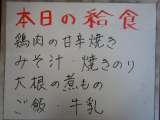 本日の給食
鶏肉の甘辛焼き
みそ汁・焼きのり
大根の煮もの
ご飯・牛乳